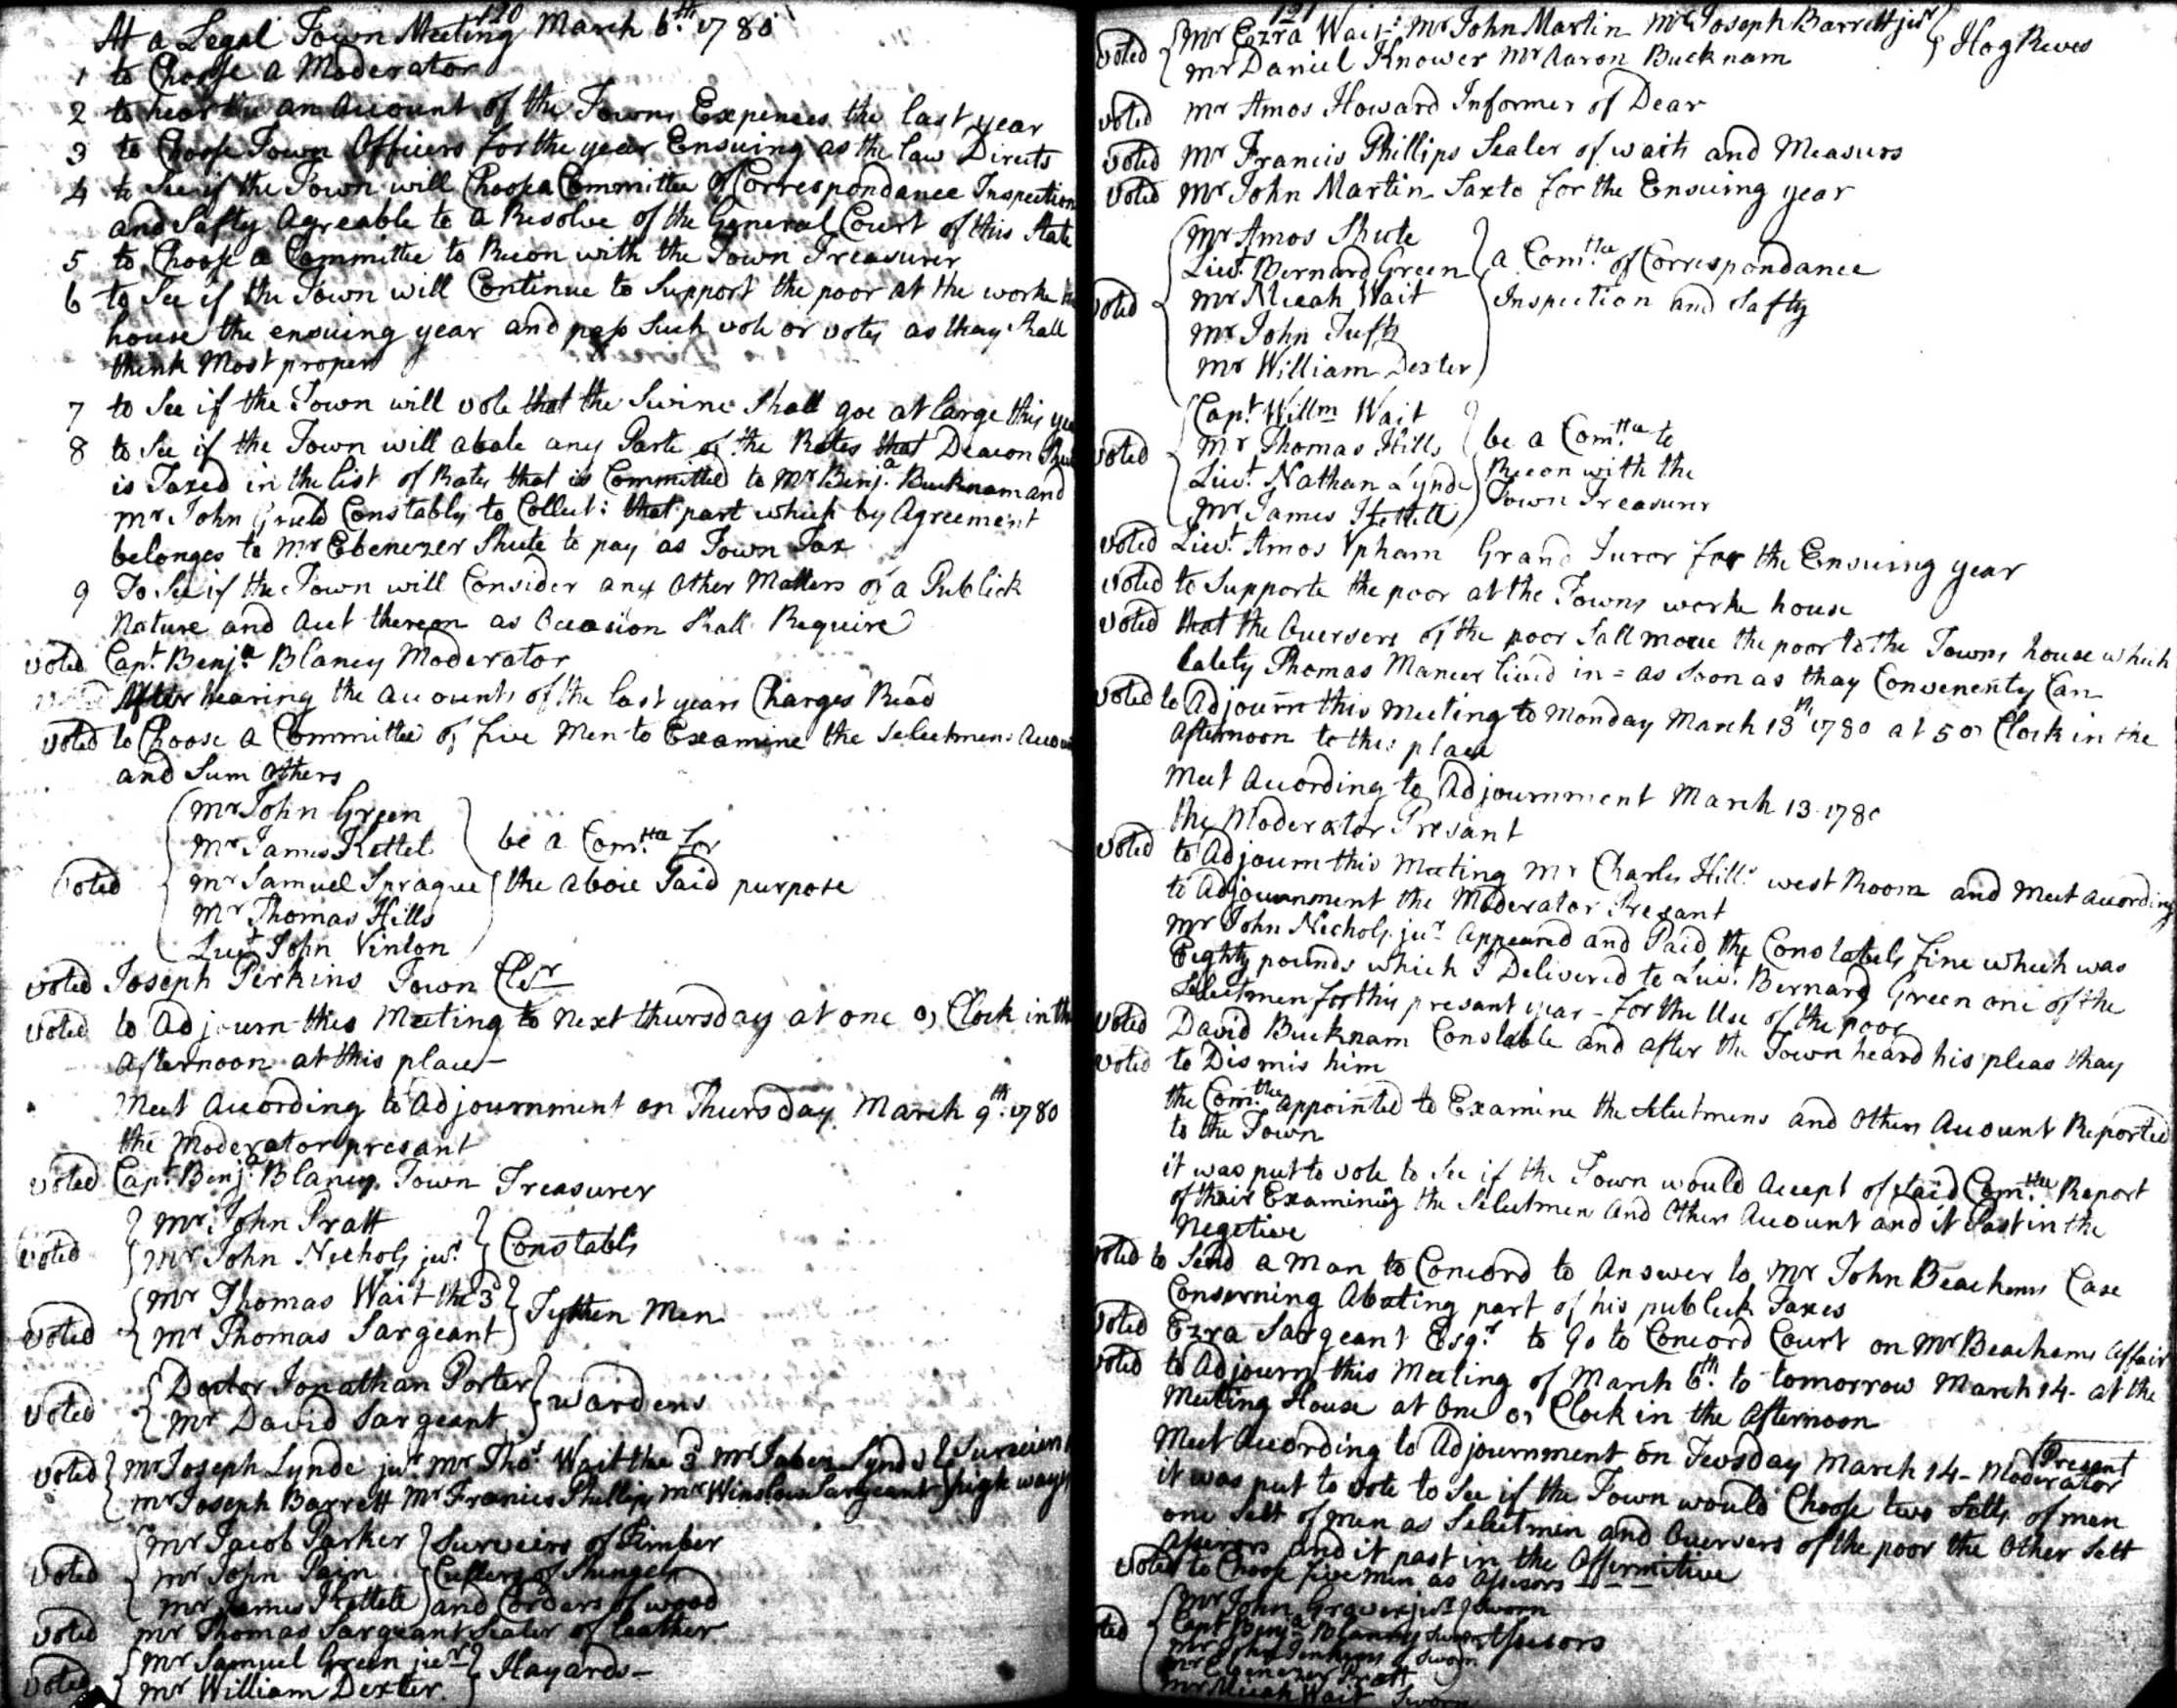 120
At a Legal Town Meeting March 6th. 1780
1 to Choose a Moderator
2 to hear an account of the Towns Expences the last year
3 to Choose Town Officers for the year Ensuing as the law Directs
4 to See if the Town will Choose a Committee of Correspondance Inspection
and Safty Agreable to a Resolve of the General Court of this State
5 to Choose a Committee to Recon with the Town Treasurer
6 to See if the Town will Continue to Support the poor at the worke
house the ensuing year and pass Such vote or votes as thay Shall
think Most proper
7 to See if the Town will vote that the Swine Shall goe at large this
8 to See if the Town will abate any Parte of the Rates that Deacon
is Taxed in the list of Rates that is Committed to Mr Benja. Bucknam and
Mr John Constabls to Collect: that part which by Agreement
belonges to Mr Ebenezer Shute to pay as Town Tax
9 To See if the Town will Consider any Other Matters of a Publick
Nature and Act thereon as Occasion Shall Require
voted Capt. Benja. Blaney Moderator
After hearing the accounts of the last years Charges Read
voted to Choose a Committee of five Men to Examine the Selectmens
and Sum Others
Mr John Green
Mr James Kettel
voted Mr Samuel Sprague be a Comttee for the above Said purpose
Mr Thomas Hills
Liut John Vinton
voted Joseph Perkins Town Clr
voted to Adjourn this Meeting to next thursday at one o, Clock in the
afternoon at this place
Meet According to Adjournment on Thursday March 9th. 1780
the Moderator presant
voted Capt. Benja. Blaney Town Treasurer
Mr. John Pratt
voted Mr John Nichols jur. Constabls
Mr Thomas Wait the 3d
voted Mr Thomas Sargeant Tythen Men
Doctor Jonathan Porter
voted Mr David Sargeant wardens
voted Mr Joseph Lynde jur. Mr Thos. Wait the 3d Mr Jabez Lynds
Mr Joseph Barrett Mr Francis Phillips Mr Winslow Sargeant high ways
Mr Jacob Parker Surveirs of Timber
voted Mr John Pain Cullers of Shingels
Mr James Kettell and Corders of wood
voted Mr Thomas Sargeant Sealer of leather
Mr Samuel Green jur
voted Mr William Dexter Hayards
121
voted Mr Ezra Wait Mr John Martin Mr Joseph Barrett jur
Mr Daniel Knower Mr Aaron Bucknam Hog Reves
voted Mr Amos Howard Informer of Dear
voted Mr Francis Phillips Sealer of waits and Measurs
voted Mr John Martin Saxto for the Ensuing year
Mr Amos Shute
Liut. Bernard Green a Comttee of Correspondance
voted Mr Micah Wait Inspection and Safty
Mr John Tufts
Mr William Dexter
Capt. Willm Wait
voted Mr Thomas Hills be a Comttee to
Liut. Nathan Lynde Recon with the
Mr James Kettell Town Treasurer
voted Liut. Amos Upham Grand Juror for the Ensuing year
voted to Supporte the poor at the Towns worke house
voted that the Oversers of the poor Sall move the poor to the Towns house which
lately Thomas Manser lived in = as Soon as thay Convenenty Can
voted to Adjourn this Meeting to Monday March 13th 1780 at 5 o, Clock in the
Afternoon to this place
Meet according to Adjournment March 13 1780
the Moderator Presant
voted to Adjourn this Meeting Mr Charles Hills west Room and Meet according
to Adjournment the Moderator Presant
Mr John Nichols jur. appeared and Paid the Constabels fine which was
Eighty pounds which I Delivered to Liut. Bernard Green one of the
Selectmen for this presant year - for the Use of the poor
voted David Bucknam Constable and after the Town heard his pleas thay
voted to Dismis him
the Comttee appointed to Examine the Selectmens and Others Account Reported
to the Town
it was put to vote to See if the Town would Accept of Said Comttee Report
of thair Examining the Selectmen and Others Account and it Past in the
Negetive
voted to Send a man to Concord to Answer to Mr John Beachems Case
Conserning Abating part of his publick Taxes
voted Ezra Sargeant Esqr. to go to Concord Court on Mr Beachems affair
voted to Adjourn this Meeting of March 6th. to tomorrow March 14 - at the
Meeting House at One o, Clock in the Afternoon
Meet According to Adjournment on Teusday March 14 - Moderator Present
it was put to vote to See if the Town would Choose two Setts of men
one Sett of men as Selectmen and Oversers of the poor the Other Sett
Assesors and it past in the Affirmetive
voted to Choose five men as Assesors
Mr John Grover jur Sworn
Capt Benja Blaney Sworn Assesors
Mr John Jenkins Sworn
Mr Ebenezer Pratt
Mr Micah Wait Sworn